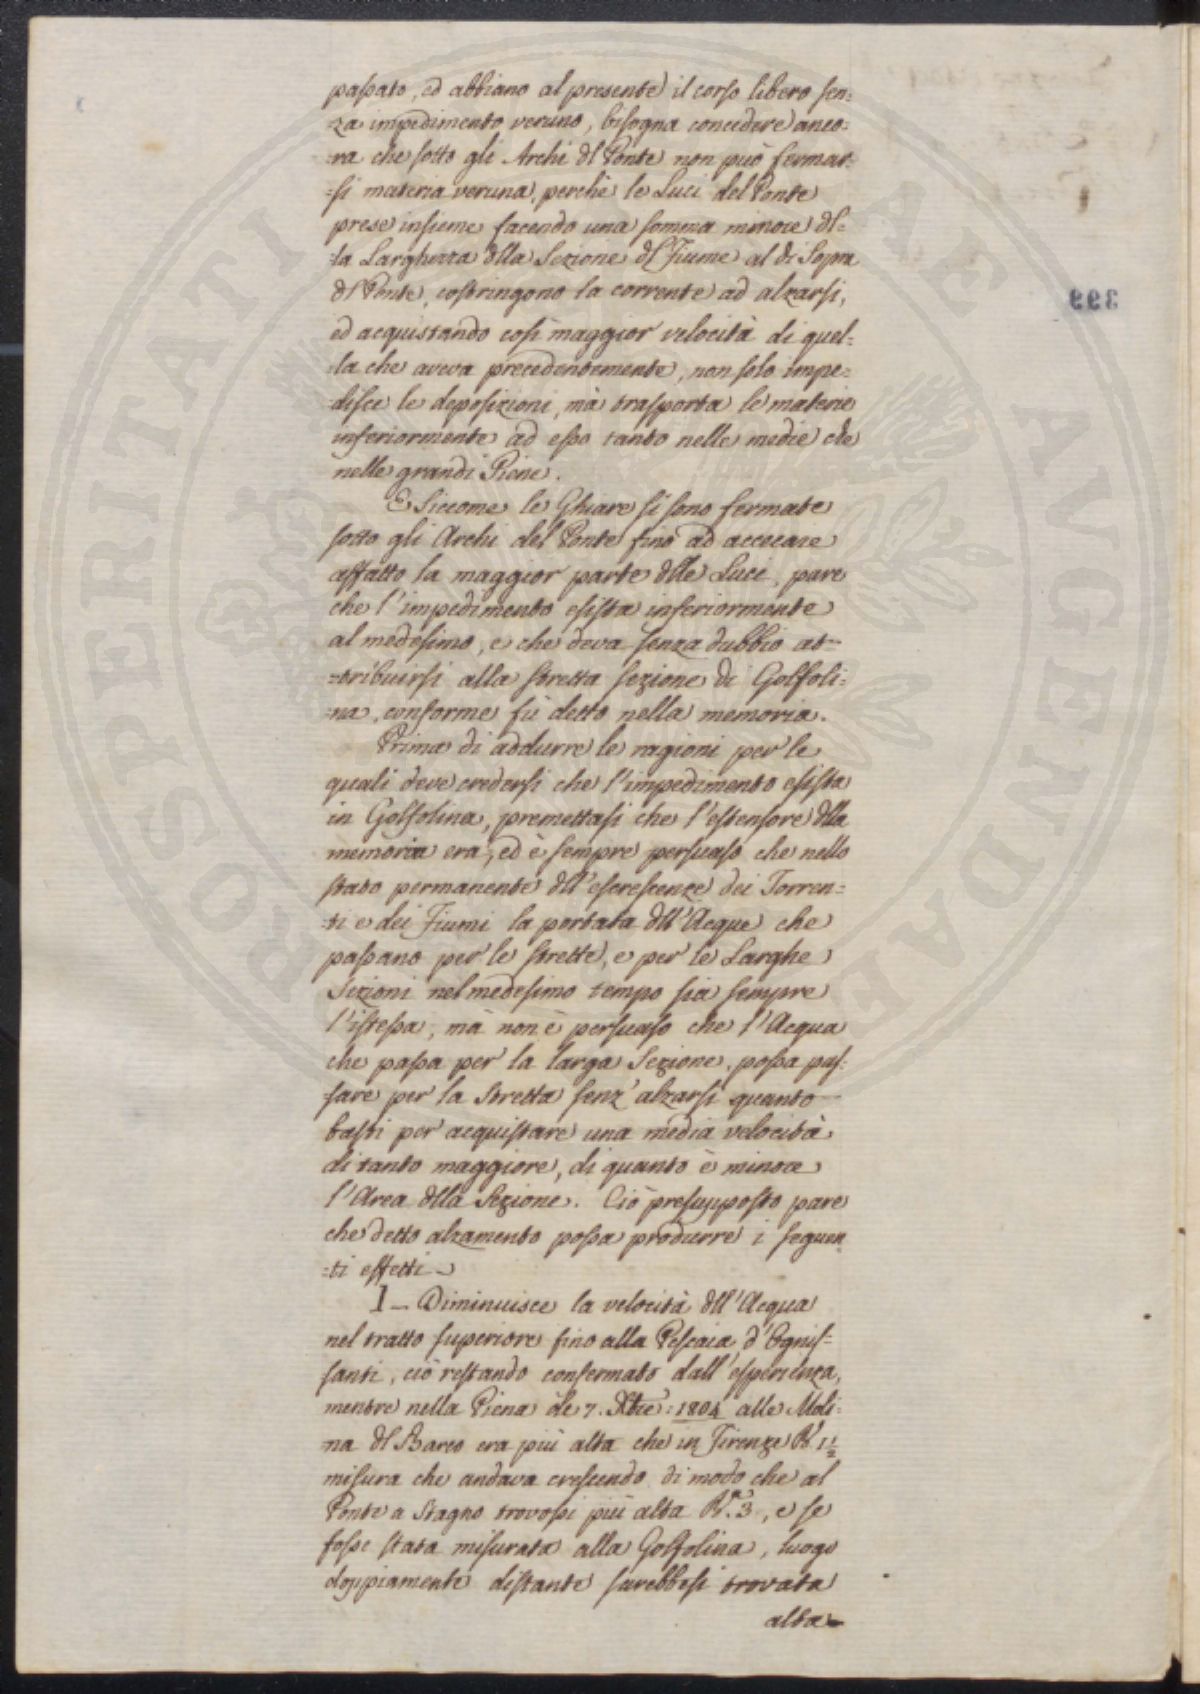 passato, ed abbiano al presente il corso libero sen:
:za impedimento veruno, bisogna concedere anco:
:ra che sotto gli Archi dl Ponte non può fermar:
:si materia veruna, perchè le Luci del Ponte
prese insieme facendo una somma minore dl:
:la Larghezza dlla Sezione dl Fiume al di Sopra
dl Ponte, costringono la corrente ad alzarsi,
ed acquistando così maggior velocità di quel:
:la che aveva precedentemente, non solo impe:
:disce le deposizioni, mà trasporta le materie
inferiormente ad esso tanto nelle medie che
nelle grandi Piene.
E Siccome le Ghiare si sono fermate
sotto gli Archi del Ponte fino ad accecare
affatto la maggior parte dlle Luci, pare
che l'impedimento esista inferiormente
al medesimo, e che deva senza dubbio at:
:tribuirsi alla stretta sezione di Golfoli:
:na, conforme fù detto nella memoria.
Prima di addurre le ragioni per le
quali deve credersi che l'impedimento esista
in Golfolina, premettasi che l'estensore dlla
memoria era, ed è sempre persuaso che nello
stato permanente dll'escrescenze dei Torren:
:ti e dei Fiumi la portata dll'Acque che
passano per le strette, e per le Larghe
Sezioni nel medesimo tempo sia sempre
l'istessa, mà non è persuaso che l'Acqua
che passa per la larga Sezione, possa pas:
:sare per la Stretta senz'alzarsi quanto
basti per acquistare una media velocità
di tanto maggiore, di quanto è minore
l'Area dlla Sezione. Ciò presupposto pare
che detto alzamento possa produrre i seguen:
:ti effetti
I – Diminuisce la velocità dll'Acqua
nel tratto superiore fino alla Pescaia d'Ognis:
santi, ciò restando confermato dall'esperienza,
mentre nella Piena de 7. Xbre: 1804 alle Moli:
na dl Barco era più alta che in Firenze Bª 1½
misura che andava crescendo di modo che al
Ponte a Stagno trovossi più alta Bª. 3., e se
fosse stata misurata alla Golfolina, luogo
doppiamente distante sarebbesi trovata
alta
399
SPERITATI
AE AVGENDAE